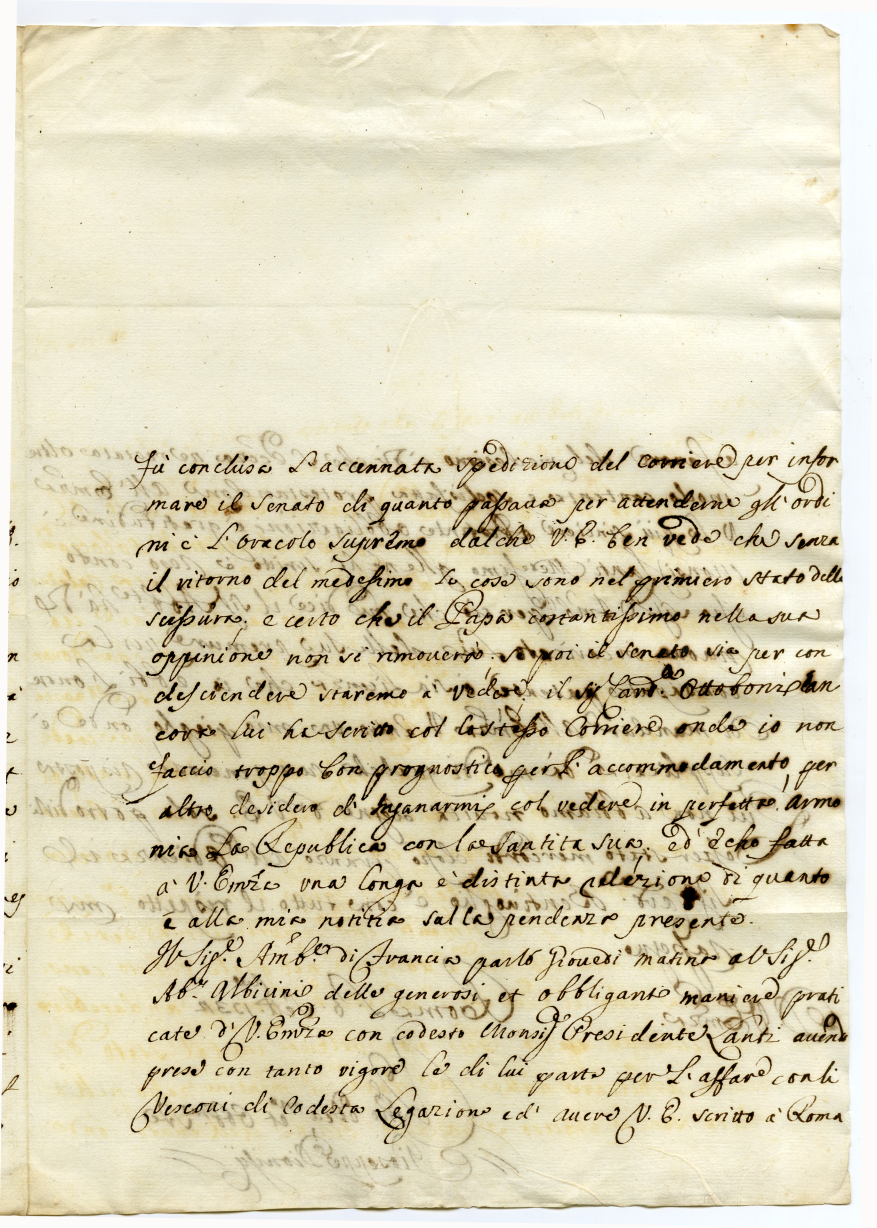 fù conclusa l'accennata spedizione del corriere per infor
mare il Senato di quanto passaua per attenderne gl'ordi
ni è l'Oracolo supremo dalche V. E. ben vede che senza
il ritorno del medessimo le cose sono nel primiero stato delle
scissure. e certo che il Papa costantissimo nella sua
oppinione non si rimouerà. se poi il senato sia per con
desciendere staremo à vedere. il Sig.r Card.le Ottoboni an
cora lui ha scritto col lo stesso Corriere onde io non
faccio troppo bon prognostico per l'accommodamento, per
altro desidero d'inganarmi col vedere in perfetta armo
nia La Republica con la Santita sua. ed ecko fatta
à V. Emza vna longa è distinta relazione di quanto
è alla mia notitia sulla pendenza presente.
Il Sig.r Amb.re di Francia parlò Giouedi matina al Sig.r
Ab.e Albicini delle generosi et obbligante maniere prati
cate d'V. Emza con codesto Monsig.r Presidente Lanti auendo
prese con tanto vigore le di lui parte per l'affare con li
Vescoui di codesta Legazione ed' auere V. E. scritto à Roma